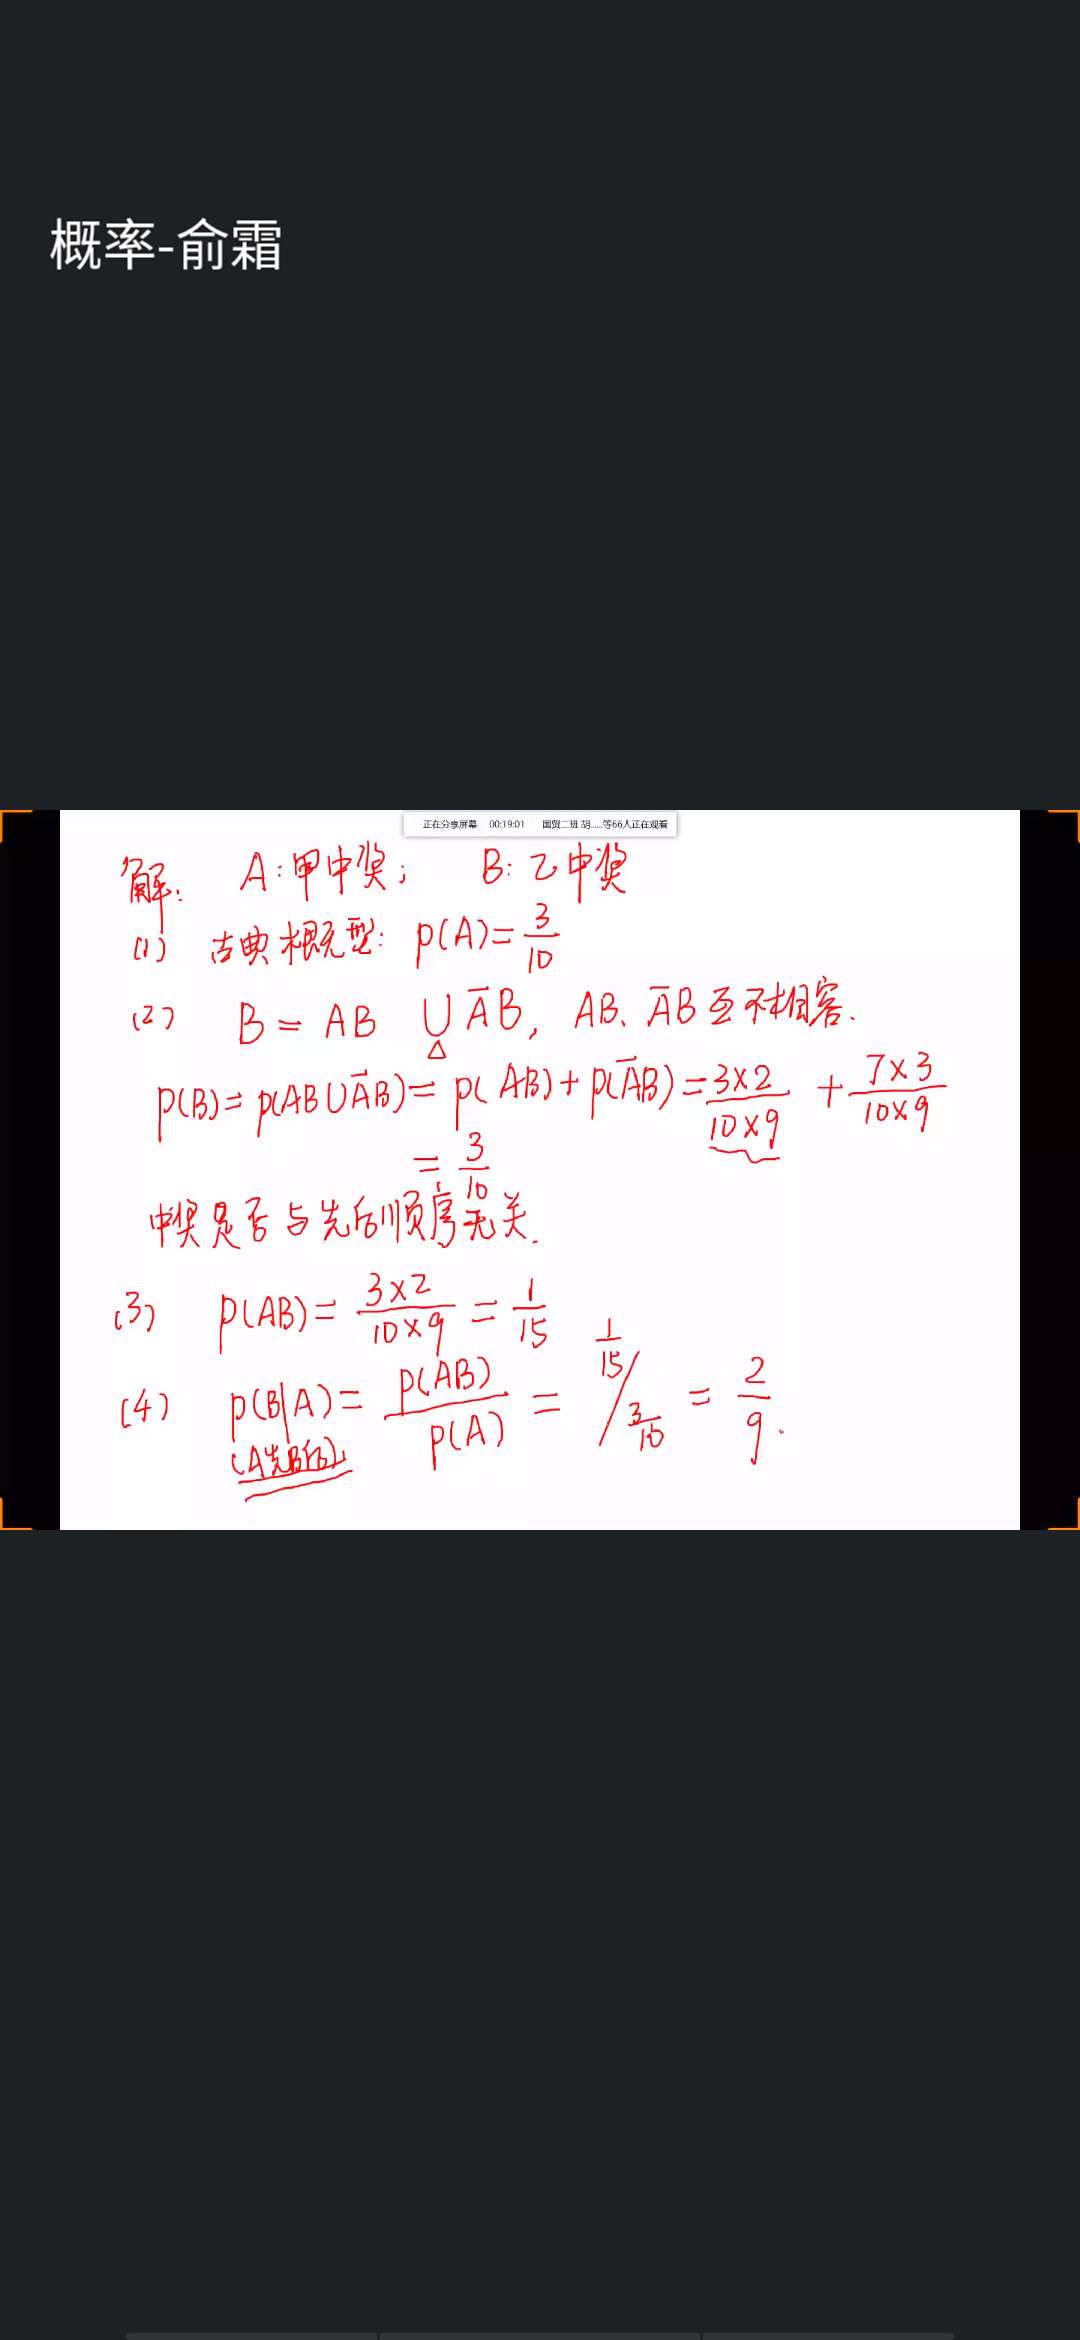 概率-俞霜
正在分享屏幕 00:19:01 国贸二班 胡.....等66人正在观看
解: A:甲中奖; B:乙中奖
(1) 古典概型: P(A)=3/10
(2) B = AB ∪ A̅B, AB、A̅B互不相容.
P(B)=P(AB∪A̅B)=P(AB)+P(A̅B)=3×2/10×9 + 7×3/10×9
= 3/10
中奖是否与先后顺序无关.
(3) P(AB)= 3×2/10×9 = 1/15
(4) P(B|A)= P(AB)/P(A) = 1/15 / 3/10 = 2/9.
(A先B后)